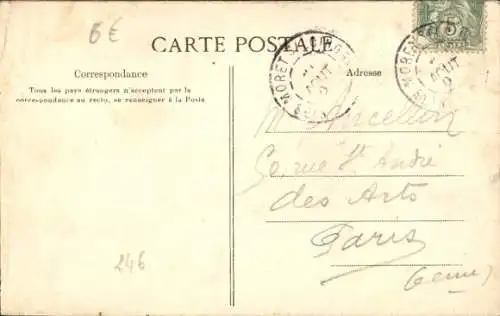 6€
CARTE POSTALE
Correspondance
Tous les pays étrangers n'acceptent pas la
correspondance au recto, se renseigner à la Poste
Adresse
5
MORET
AOUT
AOUT
M Ancellin
rue St André
des Arts
Paris
246